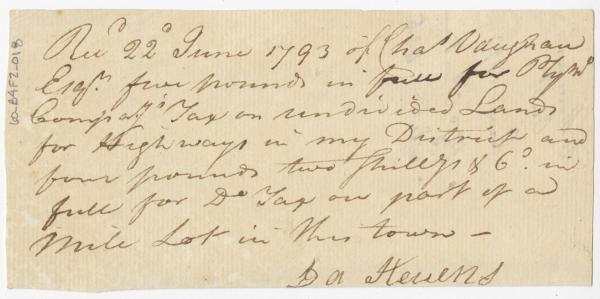 Rec^d 22^d June 1793 of Cha^s Vaughan
Esq^r. five pounds in full for Plym^o
Company^s Tax on undivided Lands
for Highways in my District and
four pounds two Shill^gs & 6^d. in
full for D^o Tax on part of a
Mile Lot in this town –
60-B4F2-018